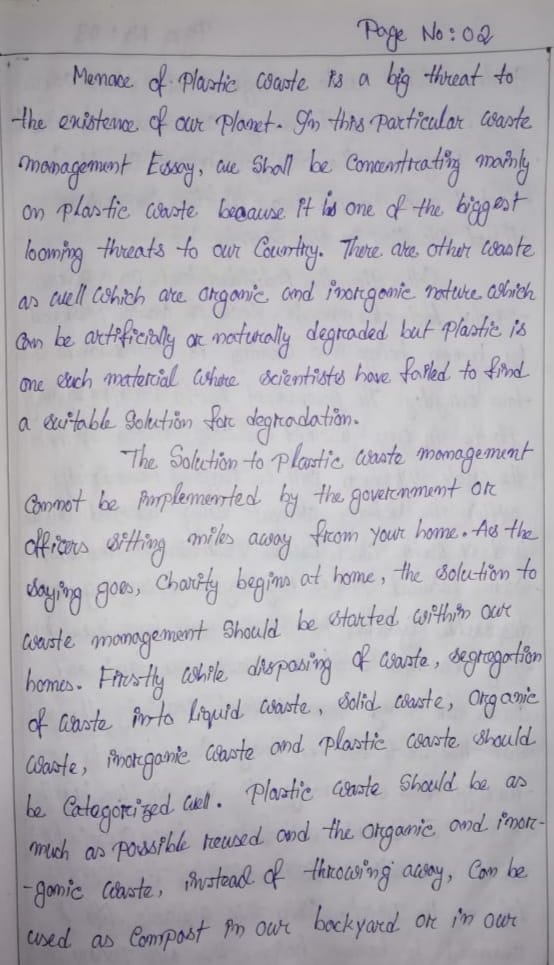 Page No: 02
Menace of plastic waste is a big threat to
the existence of our planet. In this particular waste
management Essay, we shall be concentrating mainly
on plastic waste because it is one of the biggest
looming threats to our Country. There are other waste
as well which are organic and inorganic nature which
can be artificially or naturally degraded but plastic is
one such material where scientists have failed to find
a suitable solution for degradation.
The Solution to plastic waste management
cannot be implemented by the government or
officers sitting miles away from your home. As the
saying goes, Charity begins at home, the solution to
waste management should be started within our
homes. Firstly while disposing of waste, segregation
of waste into liquid waste, solid waste, organic
waste, inorganic waste and plastic waste should
be Categorized well. Plastic waste should be as
much as possible reused and the organic and inor-
-ganic waste, instead of throwing away, can be
used as compost in our backyard or in our